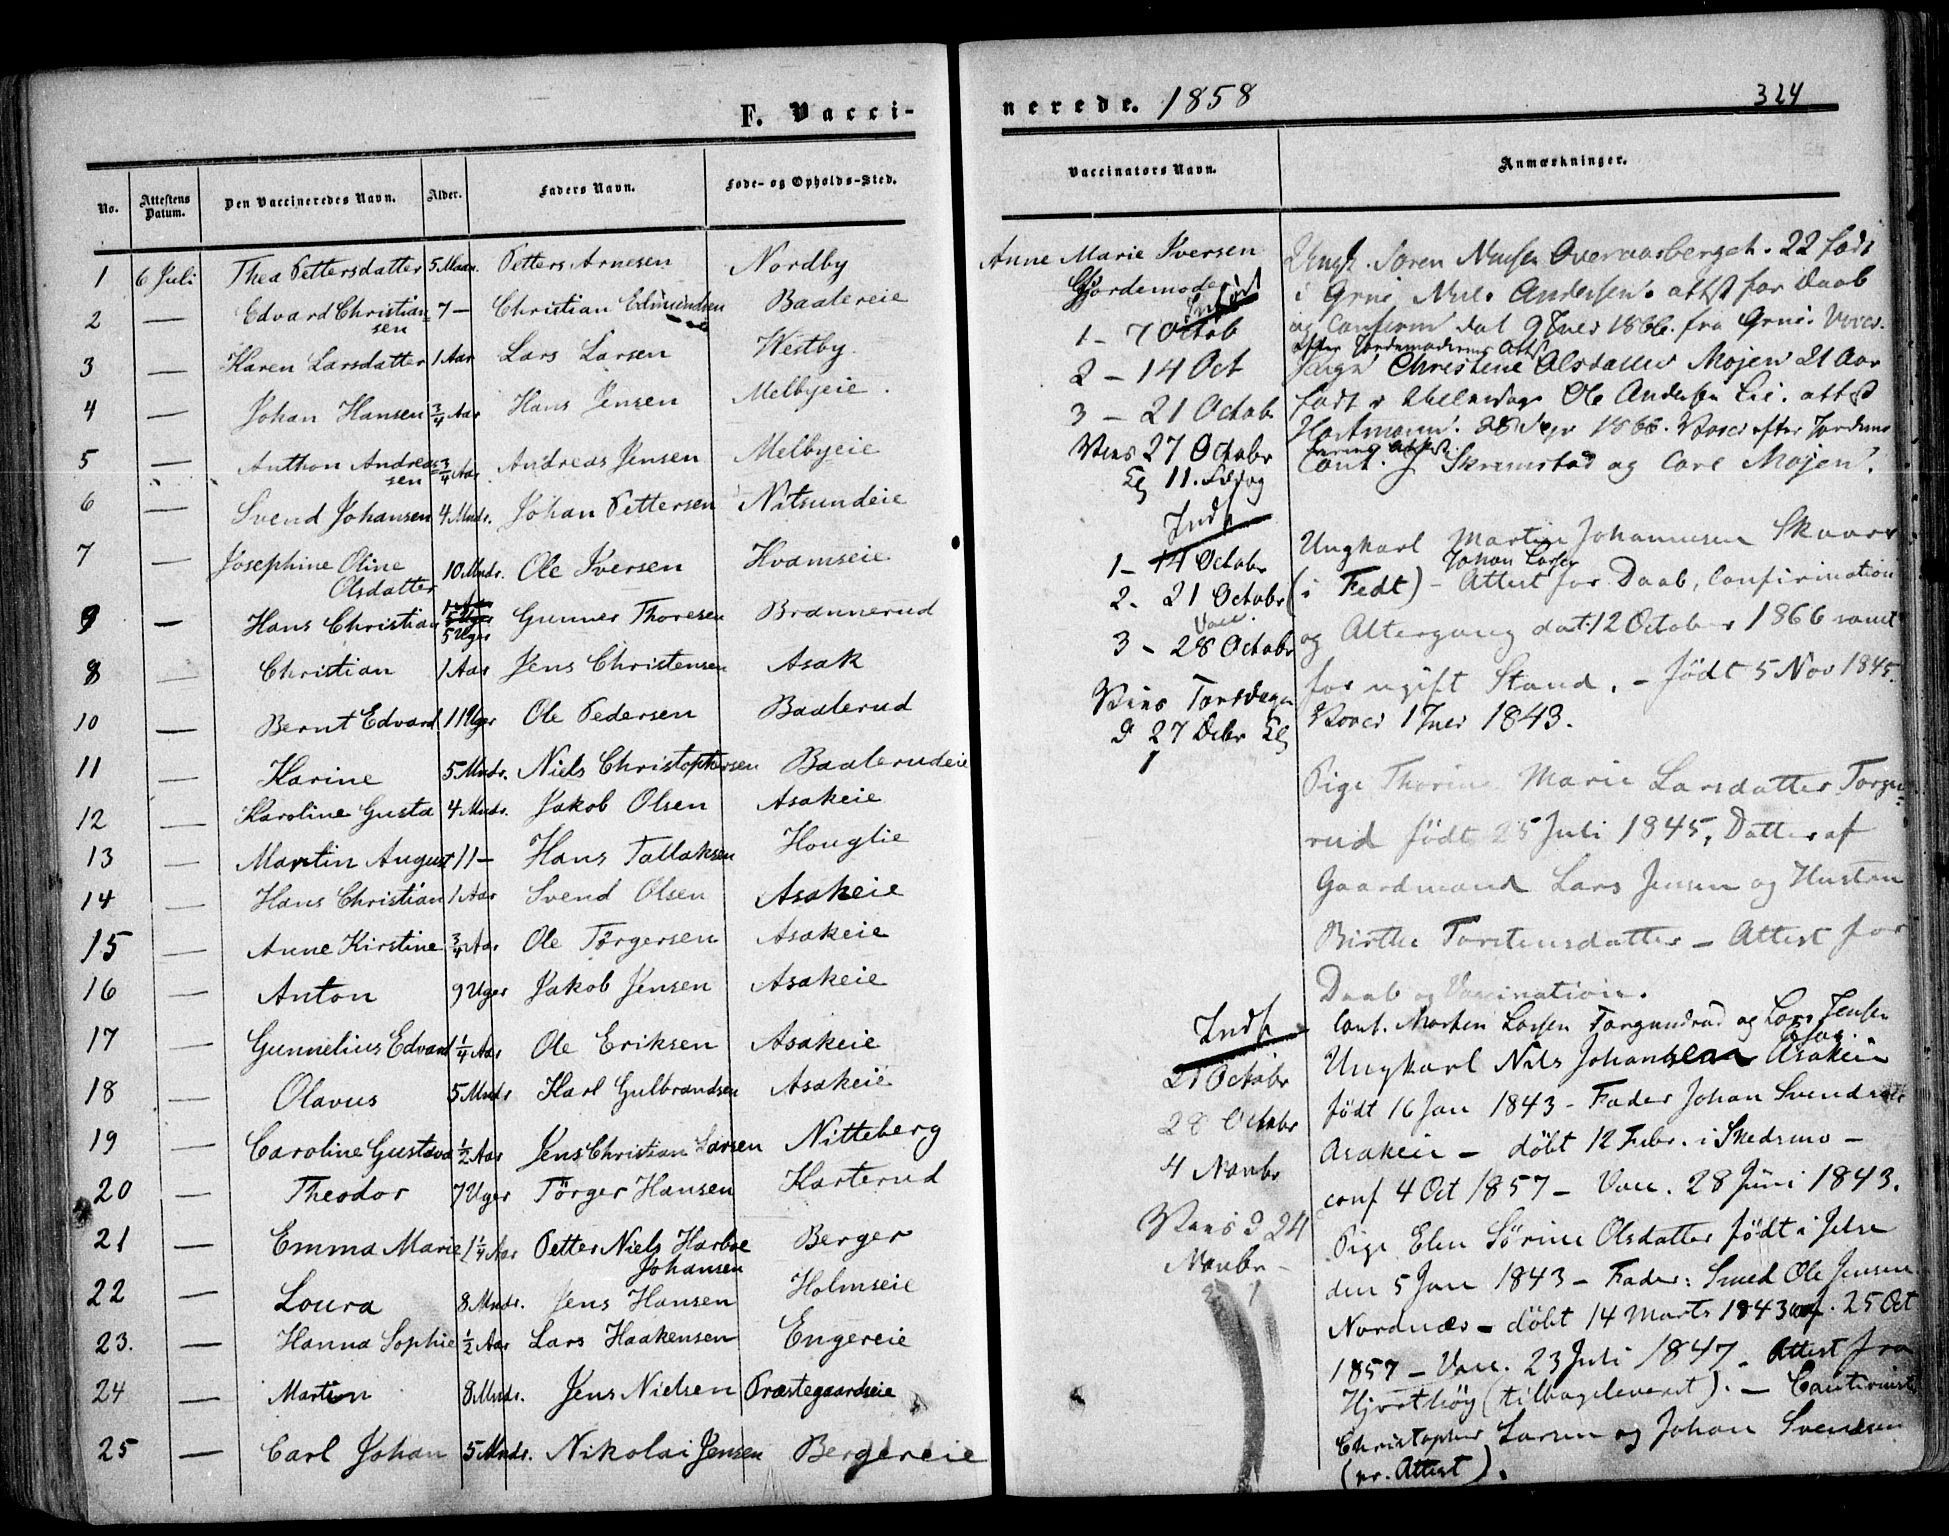 F. Vacci-
No.
Attestens Datum.
Den Vaccineredes Navn.
Alder.
Faders Navn.
Føde- og Opholds-Sted.
1 6 Juli Thea Pettersdatter 5 Maan. Petters Arnesen Nordby
2 — Edvard Christian= 7 — Christian Edmundsen Baalereie
sen
3 — Karen Larsdatter 1 Aar Lars Larsen Westby.
4 — Johan Hansen 3/4 Aar Hans Jensen Melbyeie.
5 — Anthon Andrea= 3/4 Aar Andreas Jensen Melbyeie
sen
6 — Svend Johansen 4 Mndr. Johan Pettersen Nitsundeie
7 — Josephine Oline 10 Mndr. Ole Iversen Hvamseie
Olsdatter
9 — Hans Christian 5 Uger Gunner Thoresen Brannerud
8 — Christian 1 Aar Jens Christensen Asak
10 — Bernt Edvard 11 Uger Ole Pedersen Baalerud
11 — Karine 5 Mndr. Niels Christophersen Baalerudeie
12 — Karoline Gusta 4 Mndr. Jakob Olsen Asakeie
13 — Martin August 11 — Hans Tallaksen Houglie
14 — Hans Christian 1 Aar Svend Olsen Asakeie
15 — Anne Kirstine 3/4 Aar Ole Tørgersen Asakeie
16 — Anton 9 Uger Jakob Jensen Asakeie
17 — Gunnelius Edvard 1/4 Aar Ole Eriksen Asakeie
18 — Olavus 5 Mndr Karl Gulbrandsen Asakeie
19 — Caroline Gustava 1/2 Aar Jens Christian Larsen Nitteberg
20 — Theodor 7 Uger Törger Hansen Karterud
21 — Emma Marie 1 1/4 Aar Petter Niels Harboe Berger
Johansen
22 — Loura 8 Mndr. Jens Hansen Holmseie
23. — Hanna Sophie 1/2 Aar Lars Haakensen Engereie
24 — Martin 8 Mndr. Jens Nielsen Præstegaardseie
25 — Carl Johan 5 Mndr. Nikolai Jensen Bergereie
nerede. 1858
324
Vaccinators Navn.
Anmærkninger.
Anne Marie Iversen
Gjordemoder
1 - 7 Octob
2 - 14 Oct
3 - 21 Octob
Vies 27 Octobr
Kl 11. Lørdag
Indf
1 - 14 Octobr
2. 21 Octobr
3 - 28 Octobr
Vies Torsdagen
d 27 Decbr Kl
1
Indf
21 Octobr
28 Octobr
4 Novbr
Vies d 24
Novbr -
1
Ungk. Søren 22 født
i Nils Andersen. attst for Daab
og Confirm dat 1866. fra
Christine Olsdatter Mojen 21 Aar
født Ole Andersen attst
Hartmann. 1866. efter
Skramstad og Carl Mojen.
Ungkarl Martin Johannesen Skaare
Johan Larsen
(i Fedt) - Attest for Daab, Confirmation
og Altergang dat. 12 October 1866 samt
for ugift Stand. - født 5 Nov 1845.
1843.
Pige Thorine Marie Larsdatter Torgu=
rud født 25 Juli 1845, Datter af
Gaardmand Lars Jensen og Hustru
Birthe Torstensdatter - Attest for
Daab og Vaccination.
Caut. Morten Larsen Torgundrud og Lars Jensen
Ungkarl Nils Johansen Asakeie
født 16 Jan 1843 - Fader Johan Svendsen
Asakeie - døbt 12 Febr. i Skedsmo -
conf 4 Oct 1857 - Vacc. 28 Juni 1843.
Pige Elen Sörine Olsdatter født i
den 5 Jan 1843 - Fader: Smed Ole Jensen
Nordnæs - døbt 14 Marts 1843 conf. 25 Oct
1857 - Vacc. 23 Juli 1847 - Attest fra
Hjorthöy (tilbageleveret). - Cautionist
Christopher Larsen og Johan Svendsen
(pr. Attest).